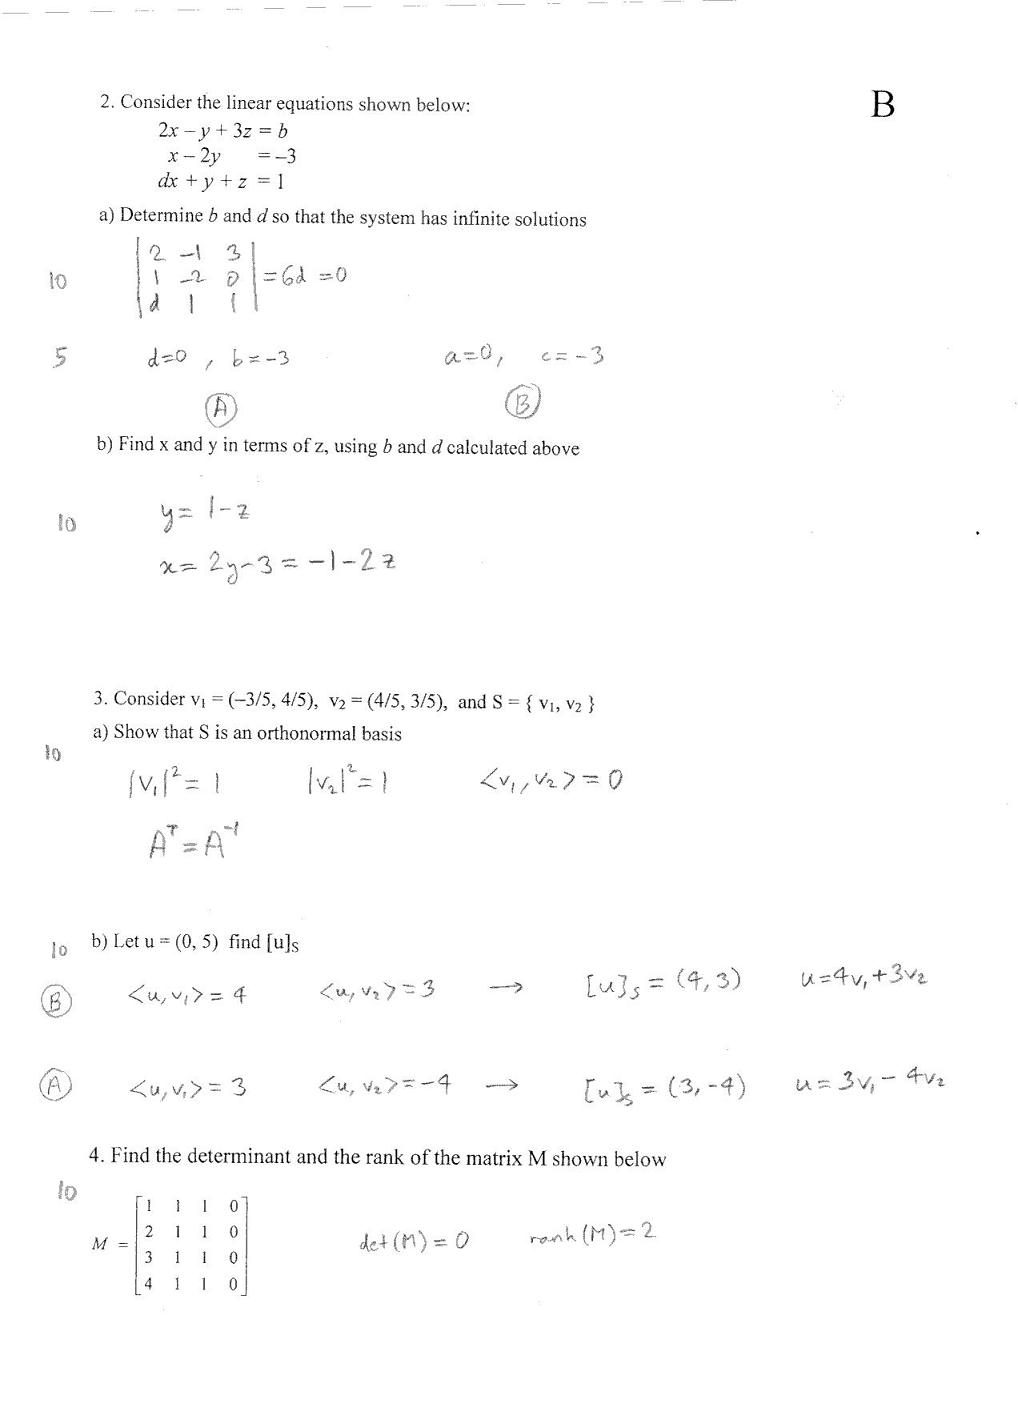 B
2. Consider the linear equations shown below:
2x – y + 3z = b
x – 2y = –3
dx + y + z = 1
a) Determine b and d so that the system has infinite solutions
10
| 2 -1 3 |
| 1 -2 0 | = 6d = 0
| d 1 1 |
5 d=0 , b=-3 a=0, c=-3
Ⓐ Ⓑ
b) Find x and y in terms of z, using b and d calculated above
10
y = 1-z
x = 2y-3 = -1-2z
3. Consider v₁ = (–3/5, 4/5), v₂ = (4/5, 3/5), and S = { v₁, v₂ }
a) Show that S is an orthonormal basis
10
|v₁|² = 1 |v₂|² = 1 <v₁, v₂> = 0
Aᵀ = A⁻¹
10 b) Let u = (0, 5) find [u]s
Ⓑ <u,v₁> = 4 <u, v₂> = 3 → [u]s = (4,3) u=4v₁+3v₂
Ⓐ <u,v₁> = 3 <u, v₂> = -4 → [u]s = (3,-4) u = 3v₁ - 4v₂
4. Find the determinant and the rank of the matrix M shown below
10
1 1 1 0
M = 2 1 1 0 det(M) = 0 rank(M) = 2
3 1 1 0
4 1 1 0